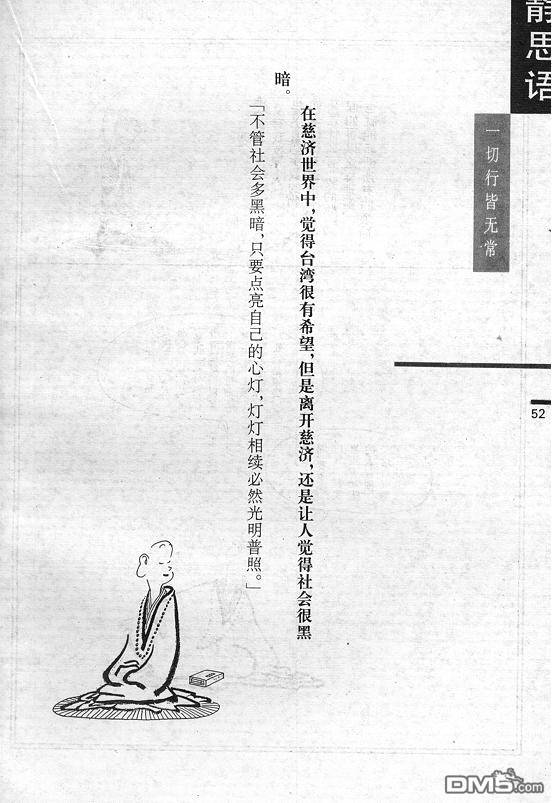 静思语
一切行皆无常
52
在慈济世界中，觉得台湾很有希望，但是离开慈济，还是让人觉得社会很黑
暗。
「不管社会多黑暗，只要点亮自己的心灯，灯灯相续必然光明普照。」
DM5.com